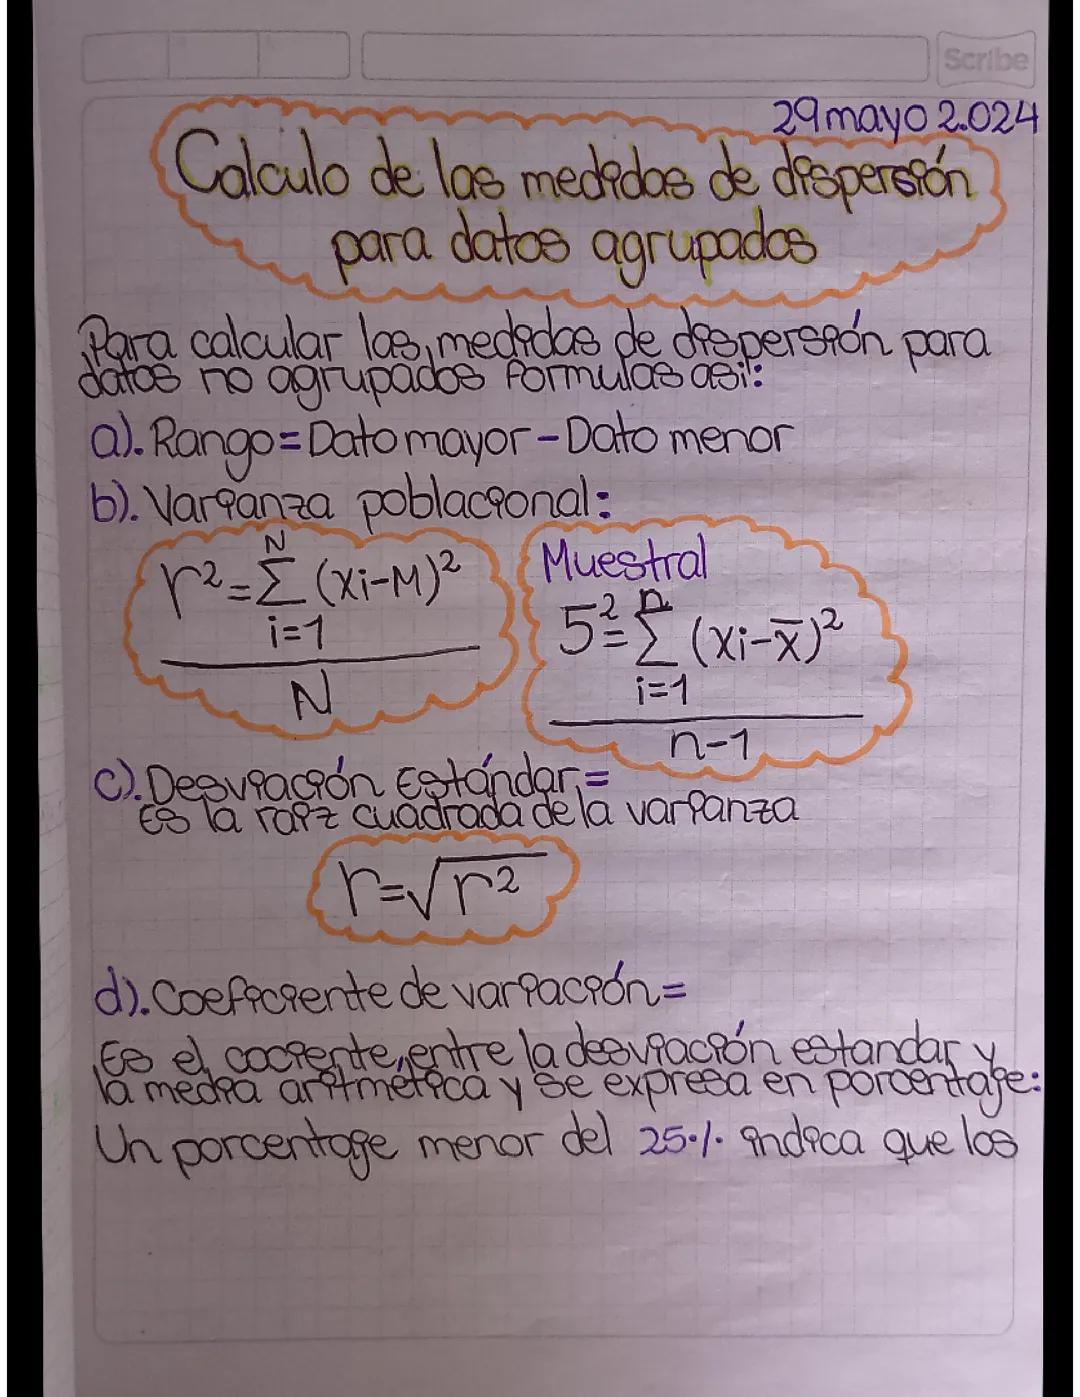 Scribe
29 mayo 2.024
Calculo de las medidas de dispersión
para datos agrupados
Para calcular las medidas de dispersión para
datos no agrupados formulas así:
a). Rango = Dato mayor - Dato menor
b). Varianza poblacional:
r² = N Σ i=1 (xi-M)² / N
Muestral
5² = n Σ i=1 (xi-x̄)² / n-1
c). Desviación Estándar =
Es la raiz cuadrada de la varianza
r=√r²
d). Coeficiente de variación =
Es el cociente, entre la desviación estandar y
la media aritmética y se expresa en porcentaje:
Un porcentaje menor del 25% indica que los